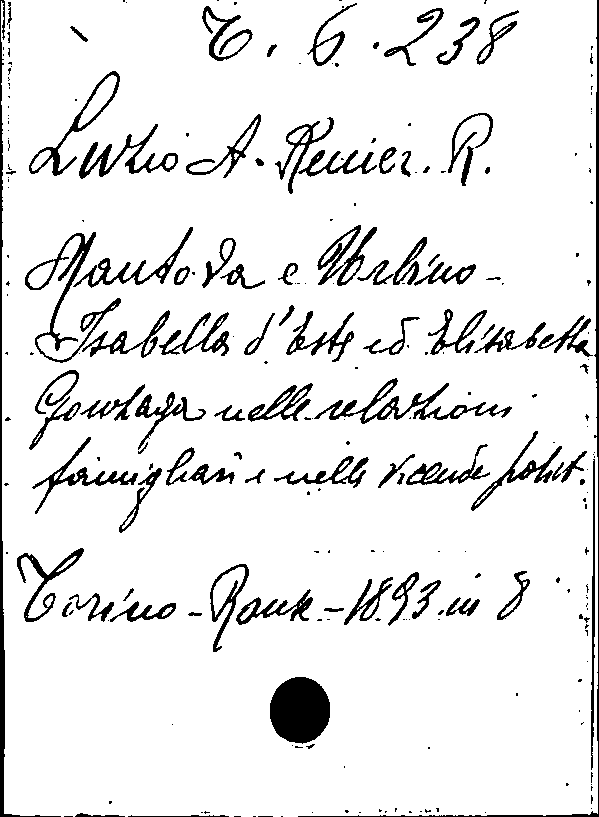 C. 6. 238
Luzio A. Renier. R.
Mantova e Urbino -
Isabella d'Este ed Elisabetta
Gonzaga nelle relazioni
famigliari e nelle vicende polit.
Torino - Roux - 1893 in 8